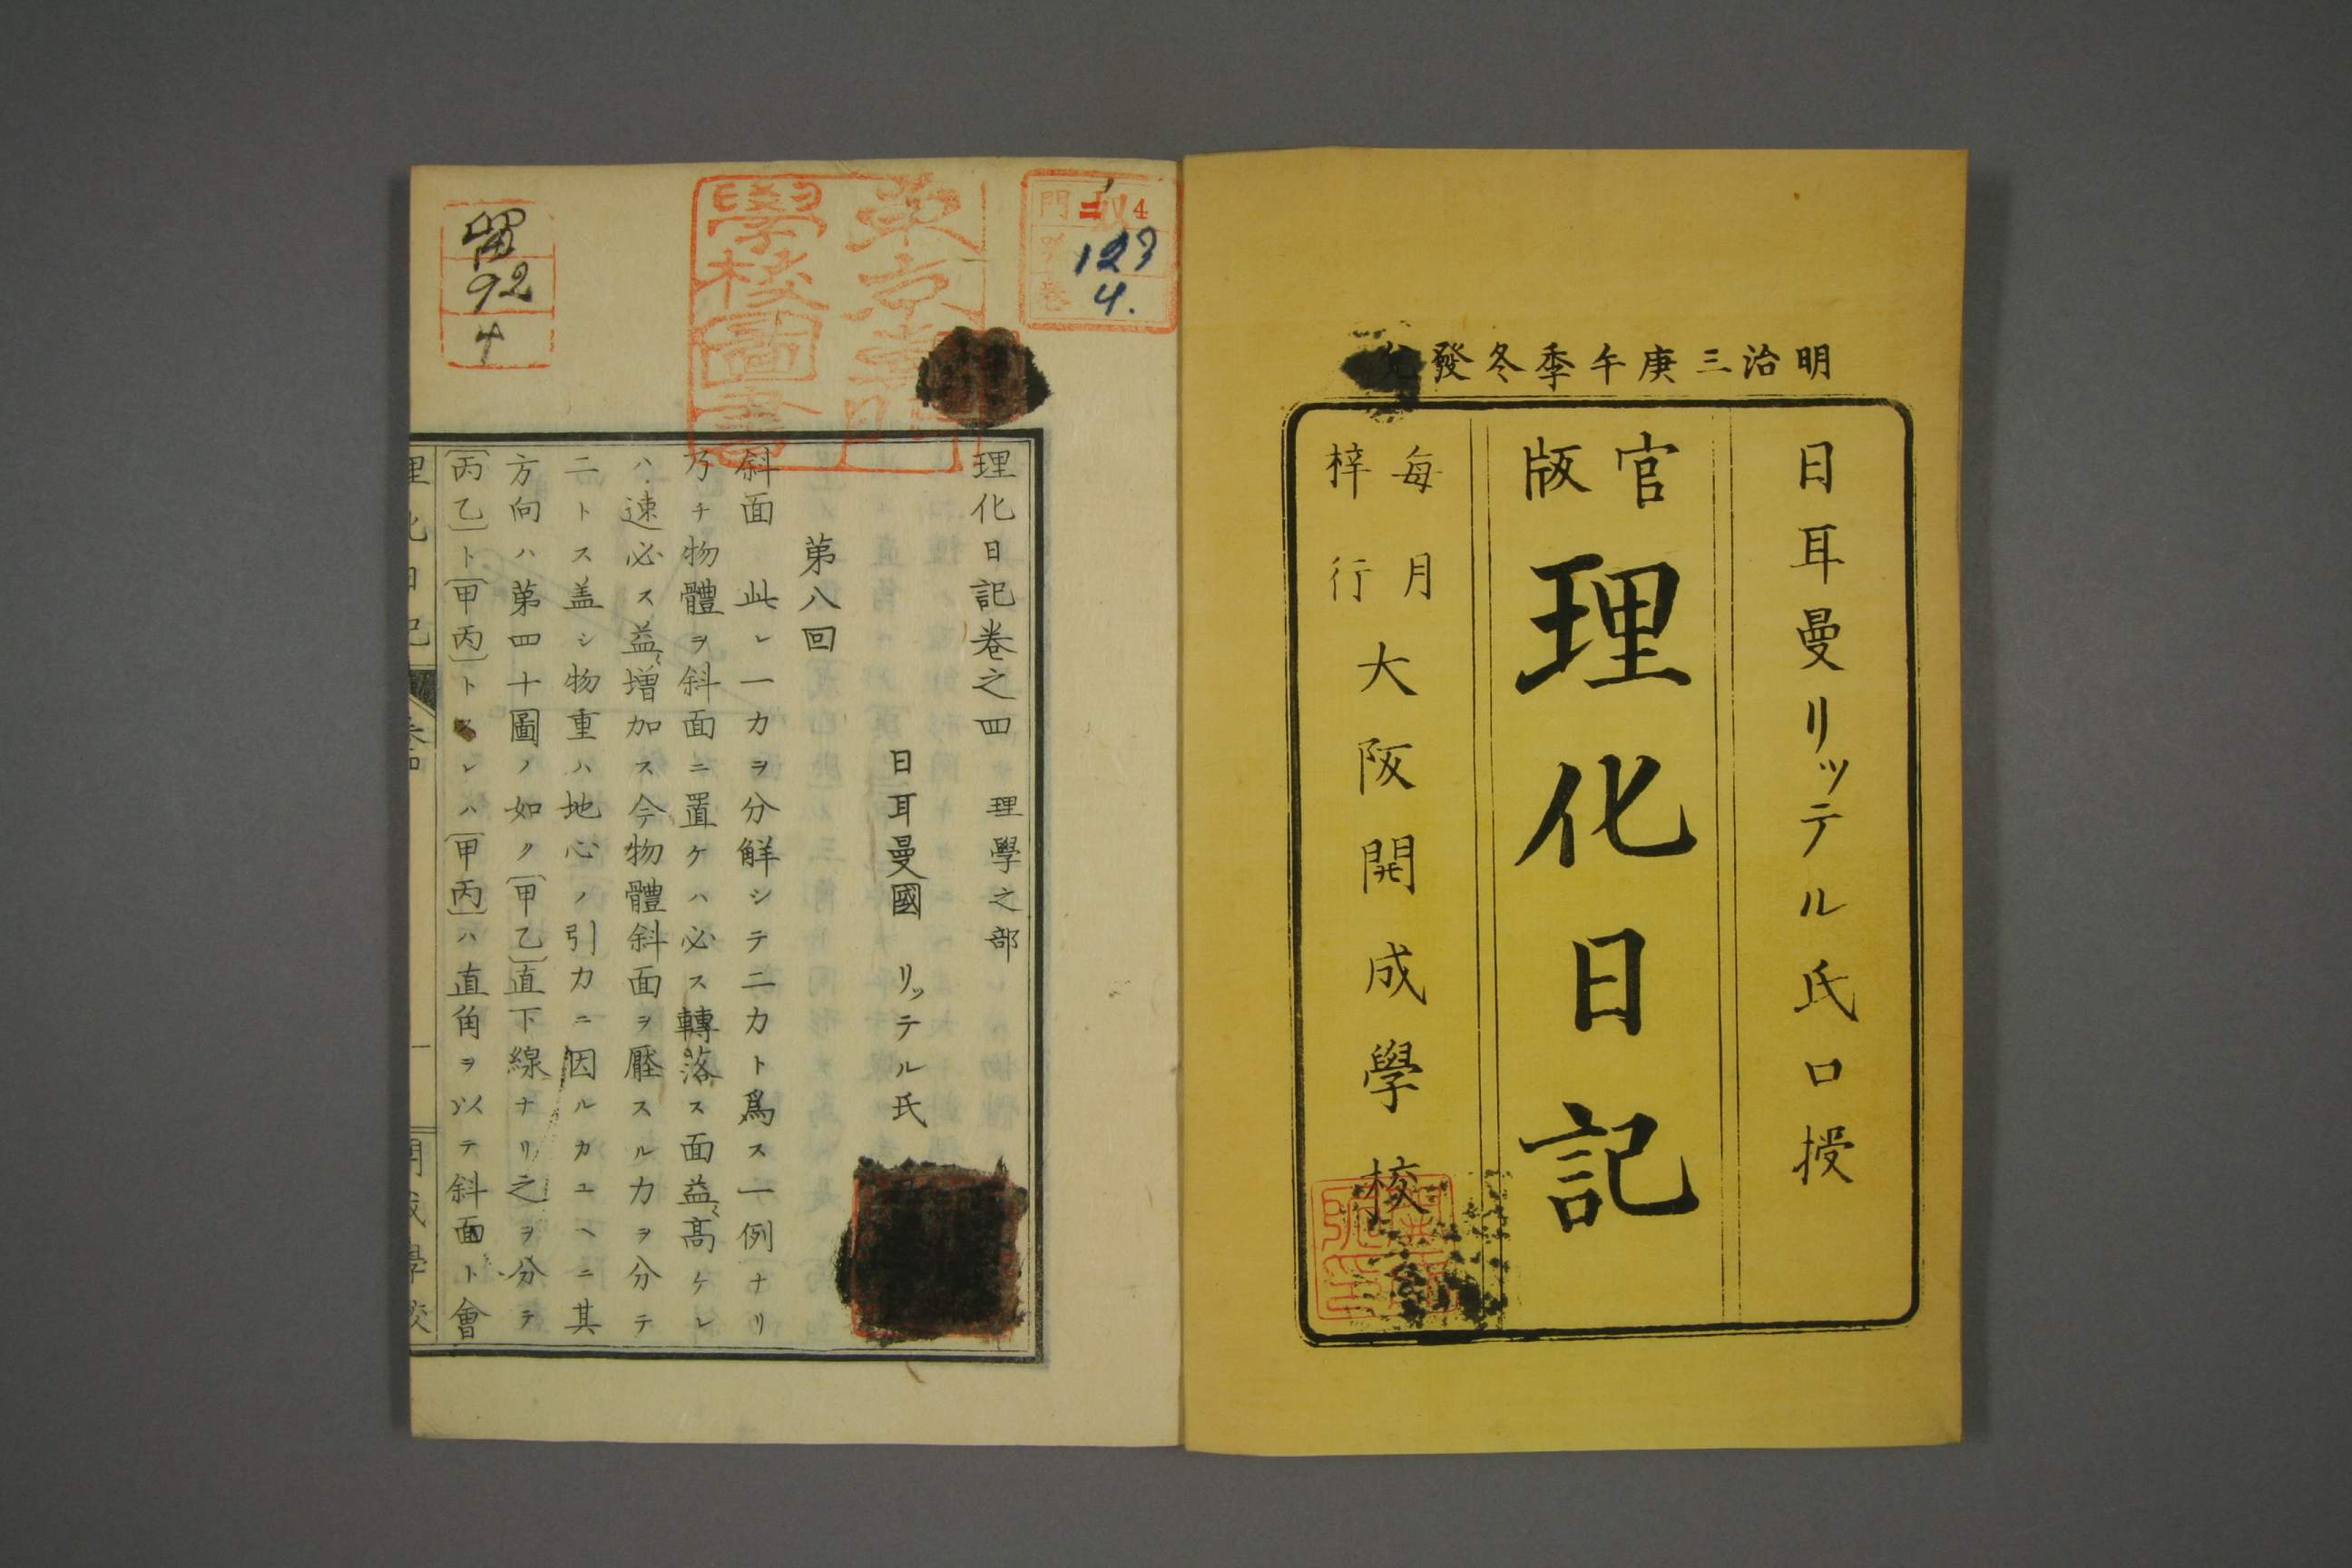 明治三庚午季冬發兌
日耳曼リッテル氏口授
官版
理化日記
毎月梓行
大阪開成學校
4
123
4.
東京
學校圖書
92
4
理化日記卷之四 理學之部
日耳曼國 リッテル氏
第八回
斜面 此レ一力ヲ分解シテ二力ト爲ス一例ナリ
乃チ物體ヲ斜面ニ置ケハ必ス轉落ス面益〻高ケレ
ハ速必ス益〻増加ス今物體斜面ヲ壓スル力ヲ分テ
二トス盖シ物重ハ地心ノ引力ニ因ルカユヘニ其
方向ハ第四十圖ノ如ク〔甲乙〕直下線ナリ之ヲ分テ
〔丙乙〕ト〔甲丙〕トスレハ〔甲丙〕ハ直角ヲ以テ斜面ト會
理化日記
開成學校